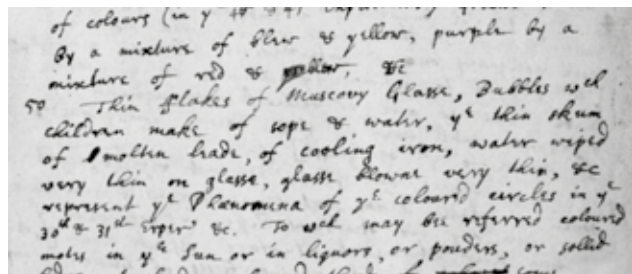 of colours (in yᵉ
by a mixture of blew & yellow, purple by a
mixture of red & yellow, &c
50 Thin flakes of Muscovy Glasse, Bubbles wᶜʰ
children make of sope & water, yᵉ thin skum
of molten leade, of cooling iron, water wiped
very thin on glasse, glasse blowne very thin, &c
represent yᵉ Phænomena of yᵉ coloured circles in yᵉ
30ᵗʰ & 31ˢᵗ Experᵗ &c. To wᶜʰ may bee referred coloured
motes in yᵉ Sun or in liquors, or pouders, or sollid